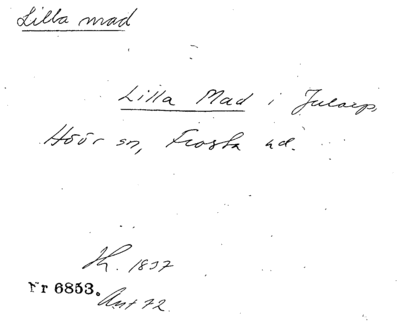 Lilla mad
Lilla Mad i Jularp,
Höör sn, Frosta hd.
1837
Nr 6853.
Ant 72.